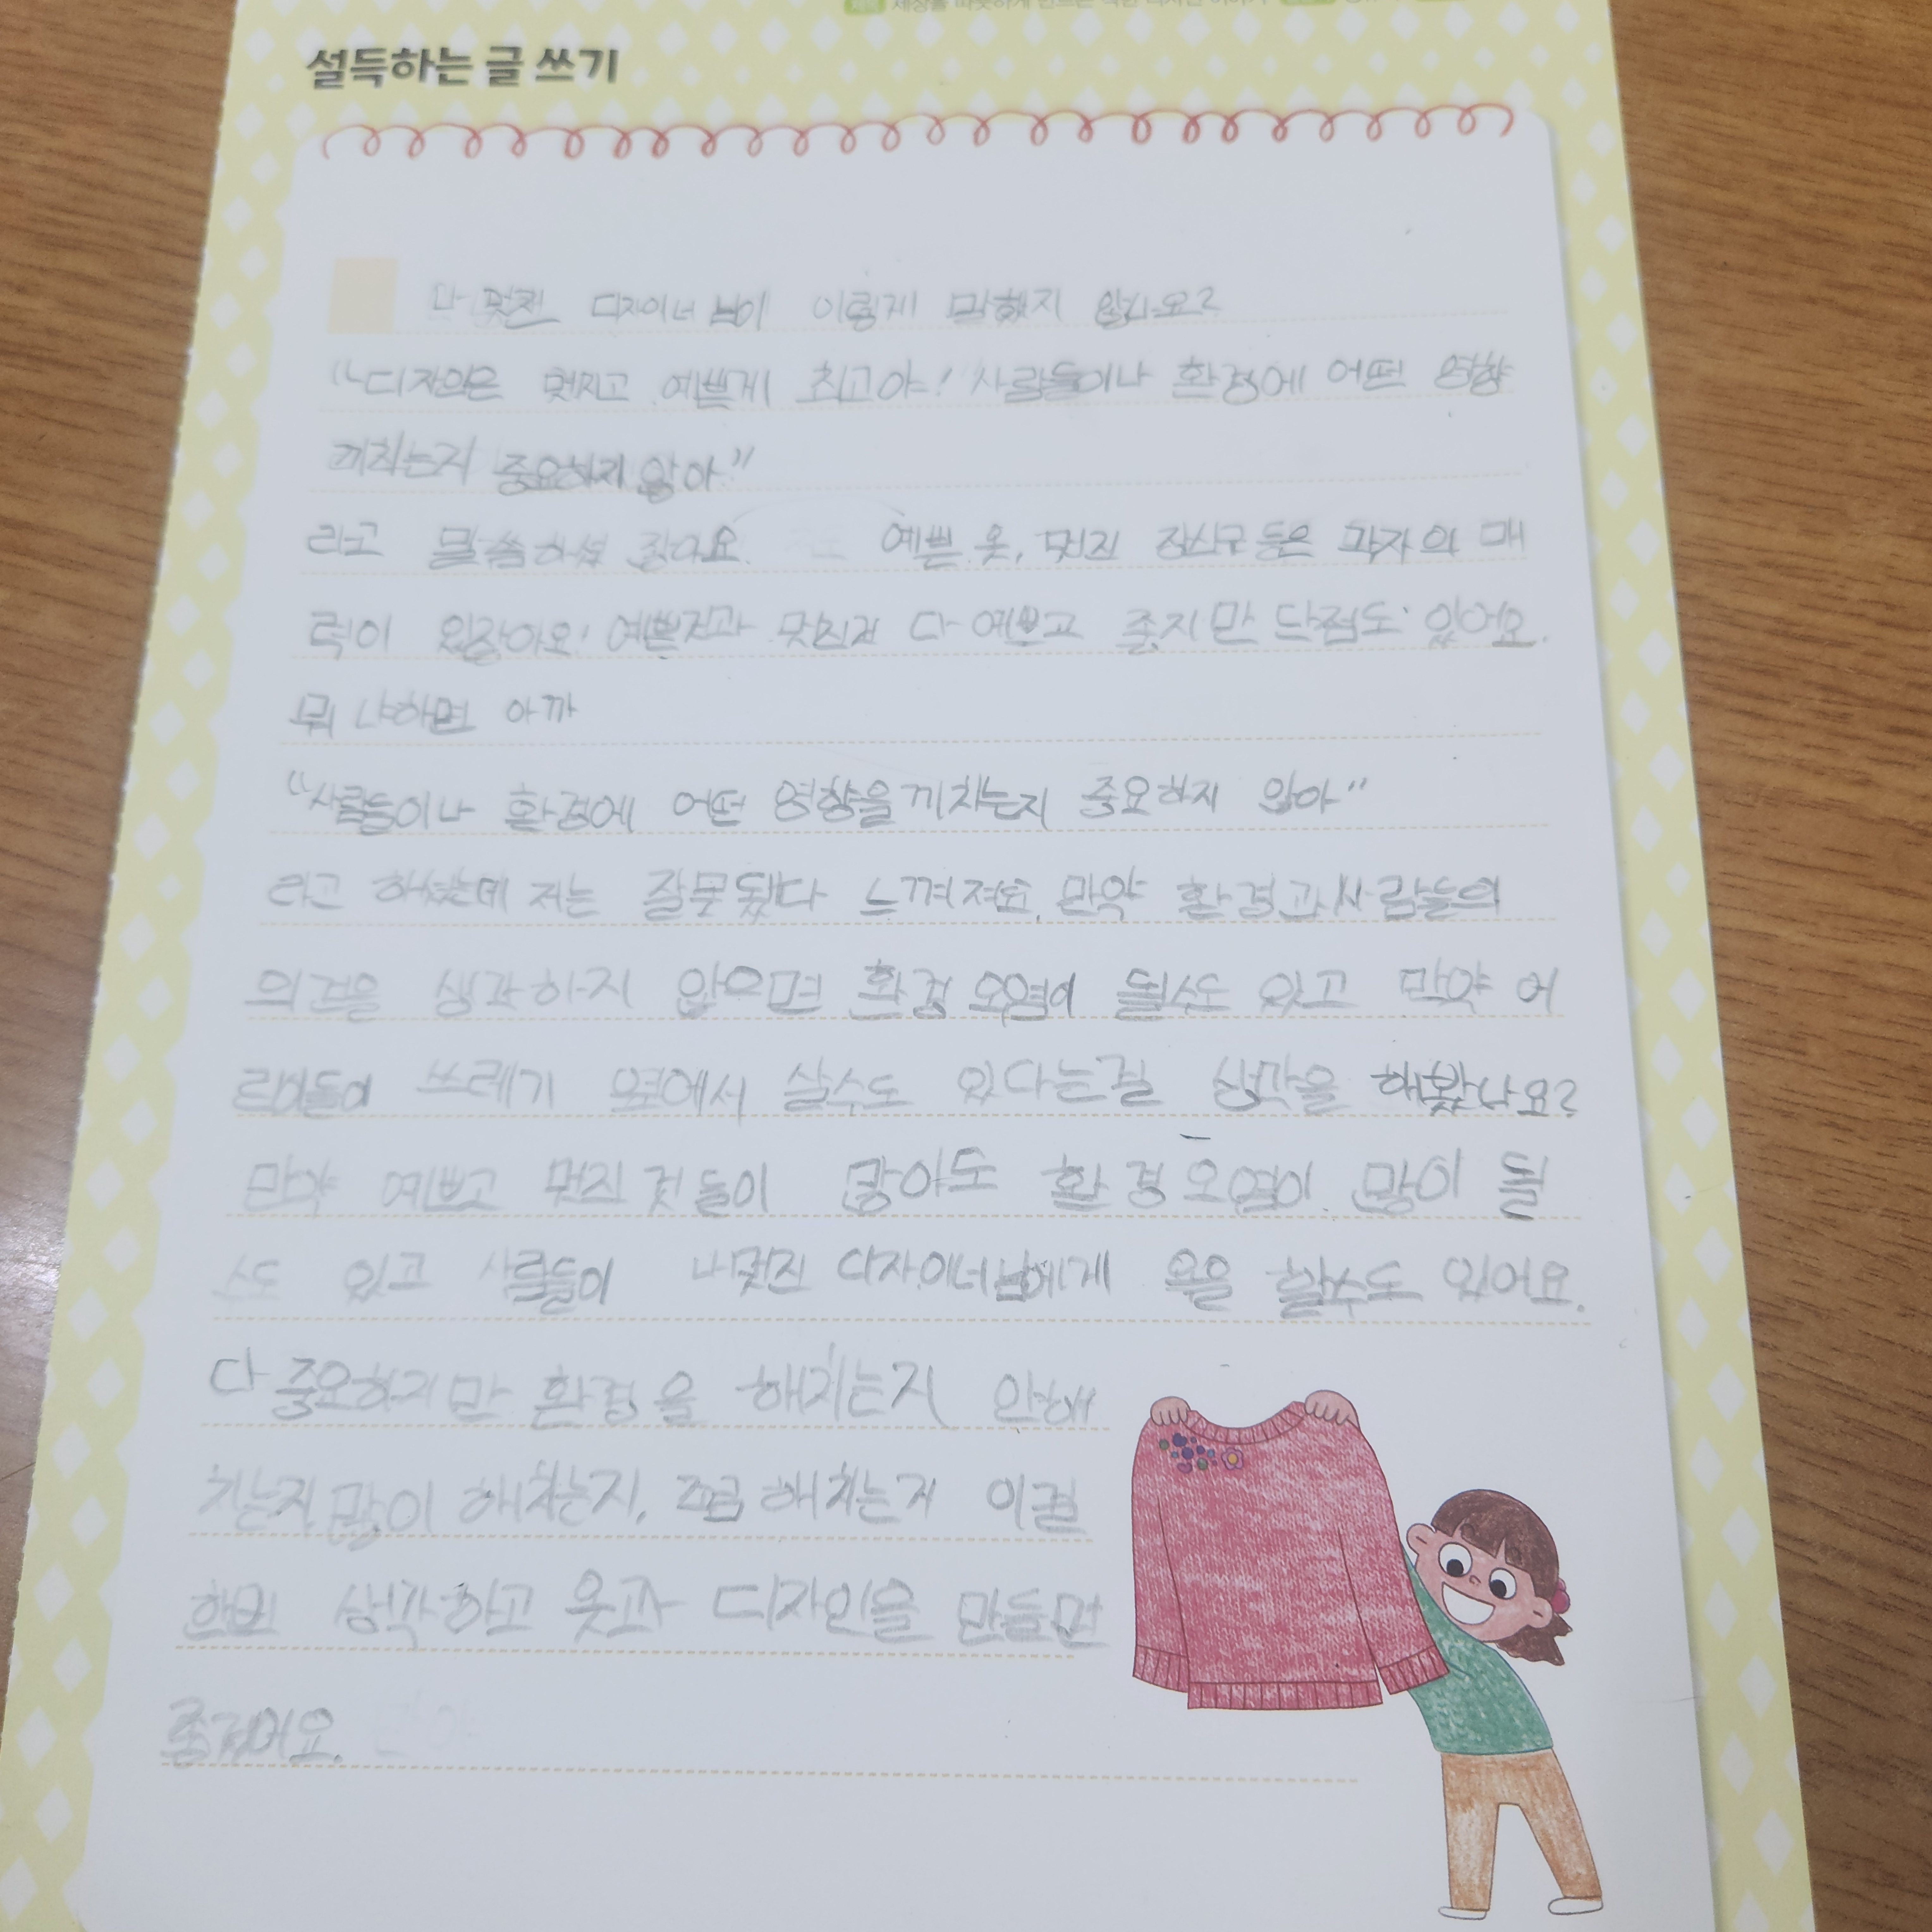 세상을 따뜻하게 만드는 착한 디자인 이야기
설득하는 글 쓰기
나 멋진 디자이너 님이 이렇게 말했지 않나요?
"디자인은 멋지고 예쁜게 최고야! 사람들이나 환경에 어떤 영향
끼치는지 중요하지 않아"
라고 말씀하셨 잖아요. 예쁜 옷, 멋진 장신구 등은 각자의 매
력이 있잖아요! 예쁜것과 멋진것 다 예쁘고 좋지만 단점도 있어요.
뭐냐하면 아까
"사람들이나 환경에 어떤 영향을 끼치는지 중요하지 않아"
라고 하셨는데 저는 잘못됐다 느껴져요. 만약 환경과 사람들의
의견을 생각하지 않으면 환경 오염이 될수도 있고 만약 어
린이들이 쓰레기 옆에서 살수도 있다는걸 생각을 해봤나요?
만약 예쁘고 멋진 것들이 많아도 환경 오염이 많이 될
수도 있고 사람들이 나멋진 디자이너님에게 욕을 할수도 있어요.
다 중요하지만 환경을 해치는지 안해
치는지, 많이 해치는지, 조금 해치는지 이걸
한번 생각하고 옷과 디자인을 만들면
좋겠어요.